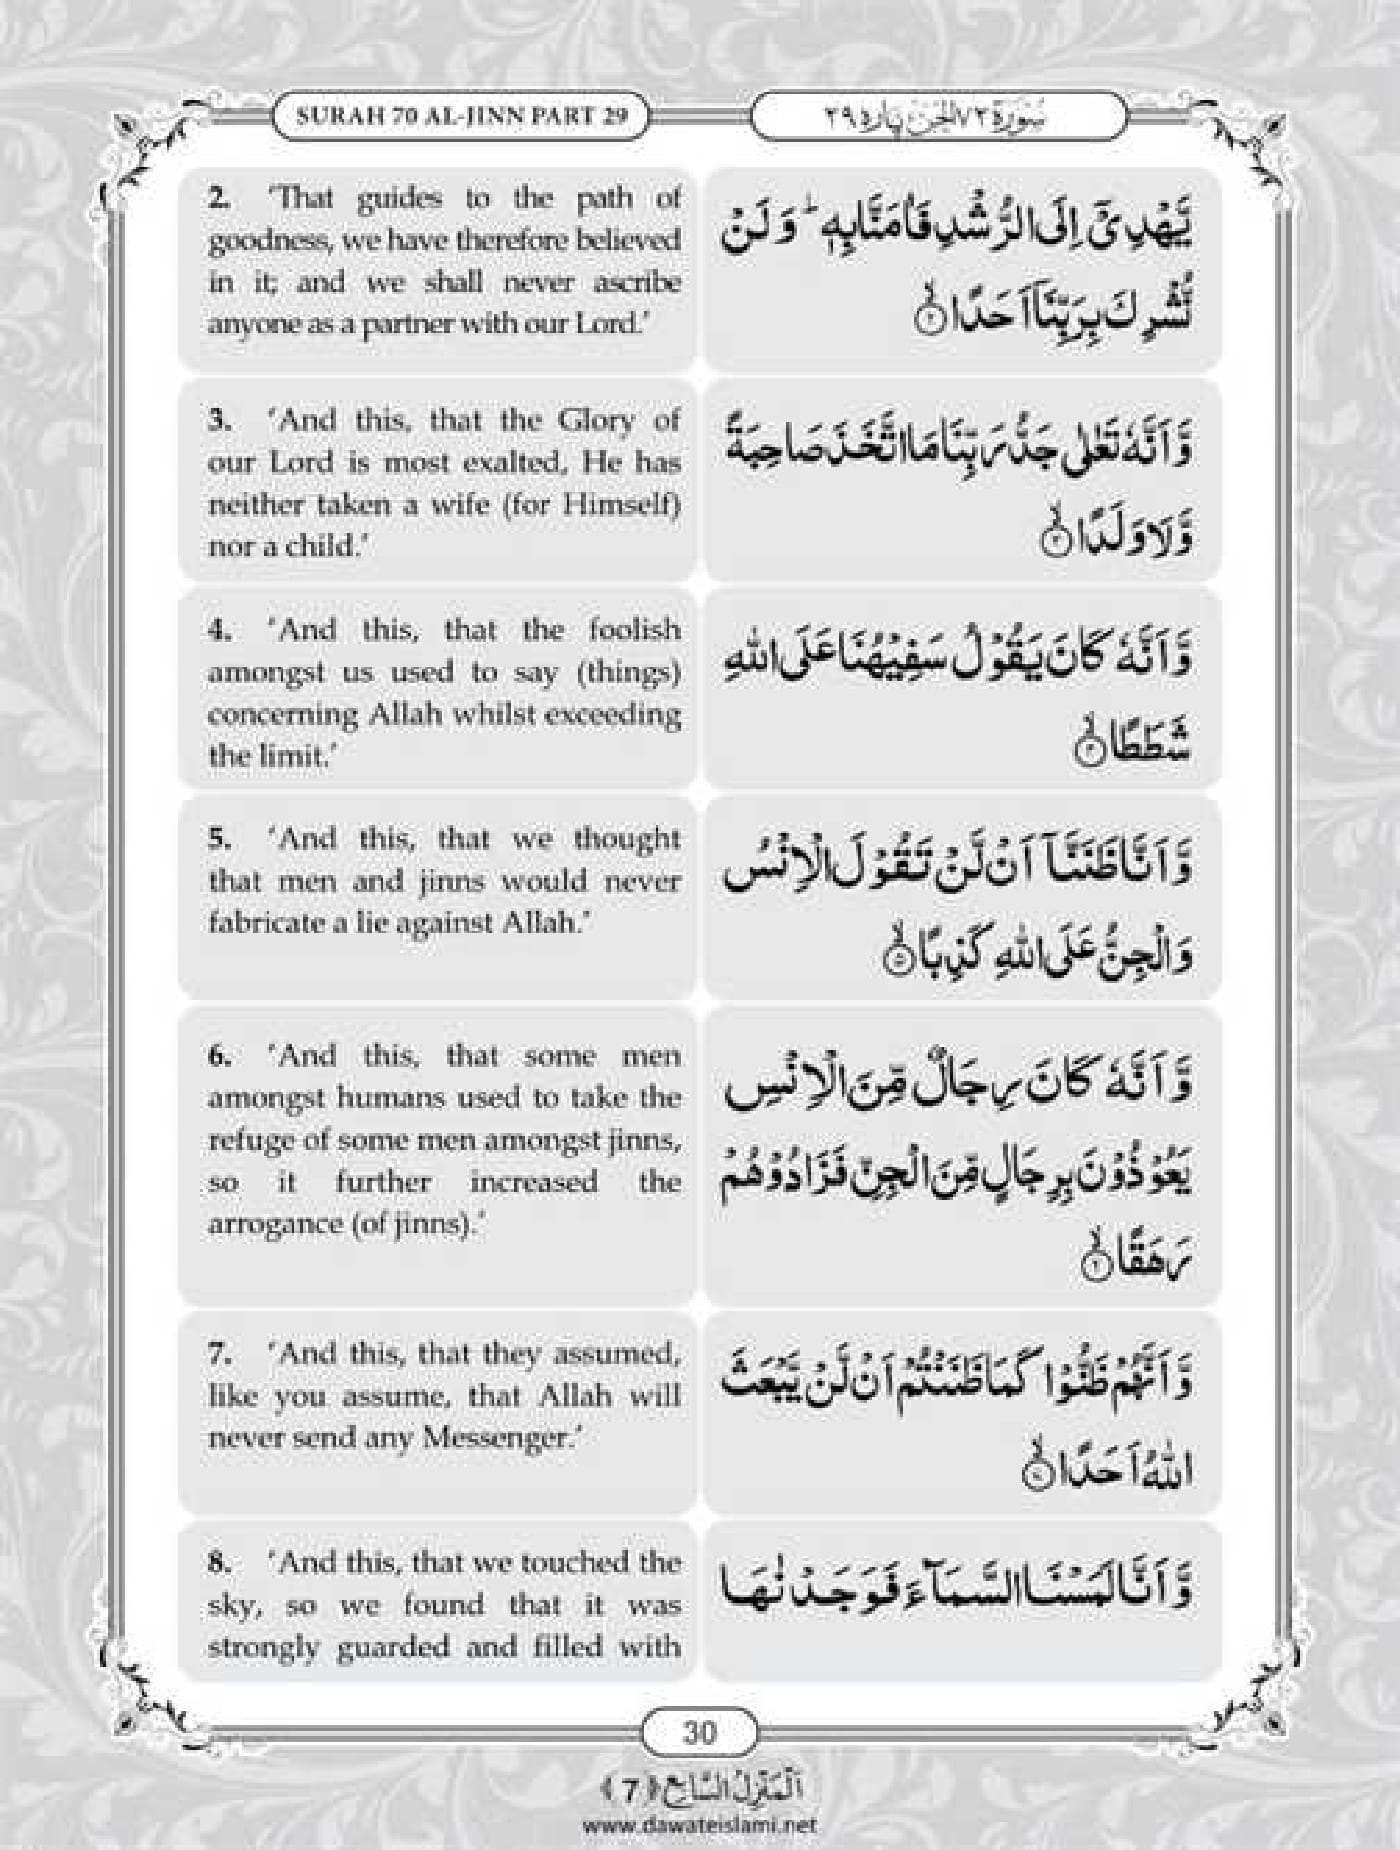 SURAH 70 AL-JINN PART 29
سُوْرَةُ ٧٢ الجن پارہ ٢٩
2. ‘That guides to the path of
goodness, we have therefore believed
in it; and we shall never ascribe
anyone as a partner with our Lord.’
یَّهْدِیْۤ اِلَى الرُّشْدِ فَاٰمَنَّا بِهٖ ؕ وَ لَنْ
نُّشْرِكَ بِرَبِّنَاۤ اَحَدًا ۙ﴿۲﴾
3. ‘And this, that the Glory of
our Lord is most exalted, He has
neither taken a wife (for Himself)
nor a child.’
وَّ اَنَّهٗ تَعٰلٰى جَدُّ رَبِّنَا مَا اتَّخَذَ صَاحِبَةً
وَّ لَا وَلَدًا ۙ﴿۳﴾
4. ‘And this, that the foolish
amongst us used to say (things)
concerning Allah whilst exceeding
the limit.’
وَّ اَنَّهٗ كَانَ یَقُوْلُ سَفِیْهُنَا عَلَى اللّٰهِ
شَطَطًا ۙ﴿۴﴾
5. ‘And this, that we thought
that men and jinns would never
fabricate a lie against Allah.’
وَّ اَنَّا ظَنَنَّاۤ اَنْ لَّنْ تَقُوْلَ الْاِنْسُ
وَ الْجِنُّ عَلَى اللّٰهِ كَذِبًا ۙ﴿۵﴾
6. ‘And this, that some men
amongst humans used to take the
refuge of some men amongst jinns,
so it further increased the
arrogance (of jinns).’
وَّ اَنَّهٗ كَانَ رِجَالٌ مِّنَ الْاِنْسِ
یَعُوْذُوْنَ بِرِجَالٍ مِّنَ الْجِنِّ فَزَادُوْهُمْ
رَهَقًا ۙ﴿۶﴾
7. ‘And this, that they assumed,
like you assume, that Allah will
never send any Messenger.’
وَّ اَنَّهُمْ ظَنُّوْا كَمَا ظَنَنْتُمْ اَنْ لَّنْ یَّبْعَثَ
اللّٰهُ اَحَدًا ۙ﴿۷﴾
8. ‘And this, that we touched the
sky, so we found that it was
strongly guarded and filled with
وَّ اَنَّا لَمَسْنَا السَّمَآءَ فَوَجَدْنٰهَا
30
اَلْمَنْزِلُ السَّابِع ﴿7﴾
www.dawateislami.net